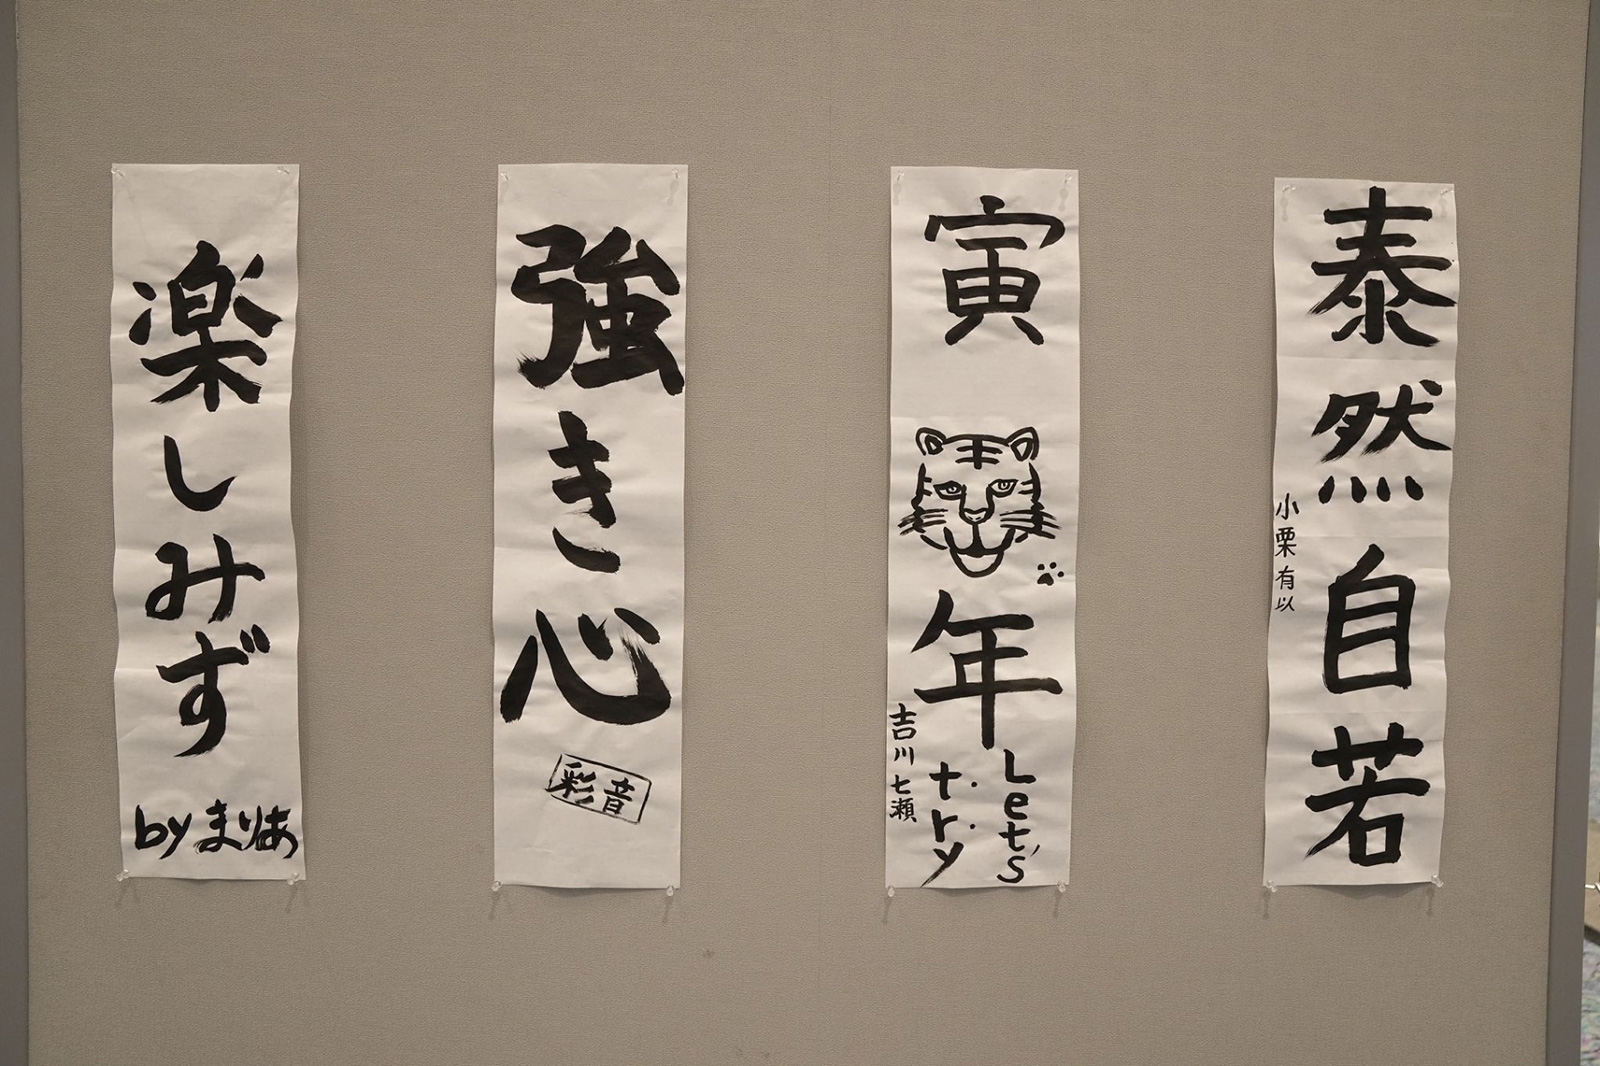 泰然自若
小栗有以
寅年
Let's
try
吉川七瀬
強き心
彩音
楽しみず
by まりあ